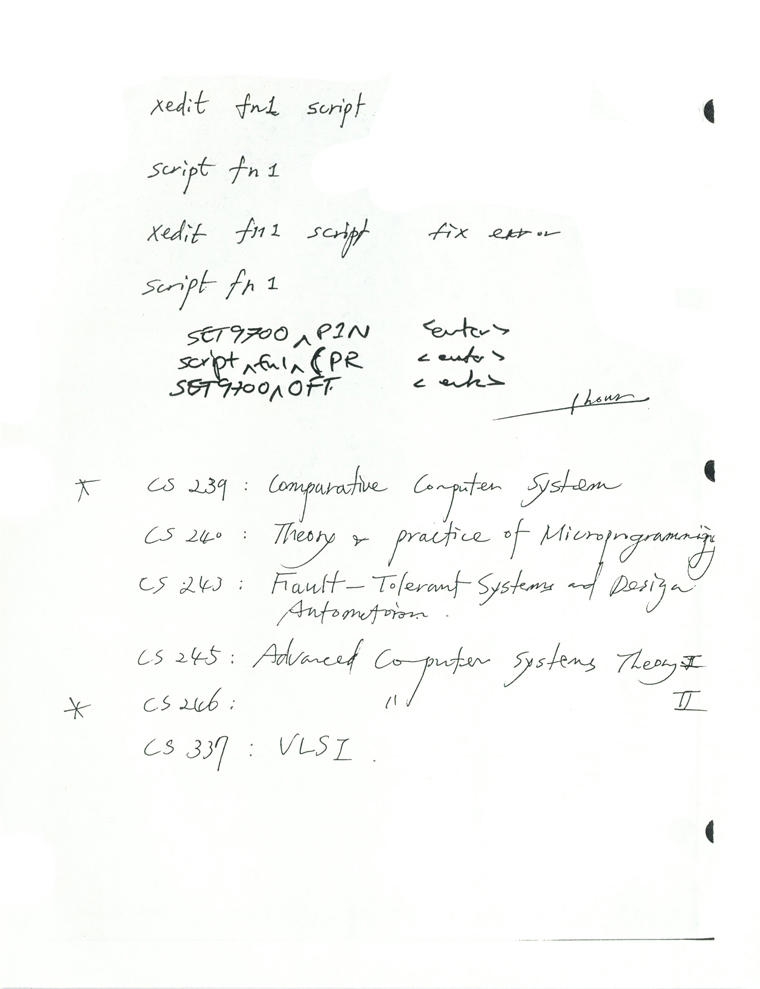 xedit fn1 script
script fn1
xedit fn1 script fix error
script fn1
SET9700 ^ PIN <enter>
script ^ fn1 ^ (PR <enter>
SET9700 ^ OFF <enter>
1 hour
* CS 239 : Comparative Computer System
CS 240 : Theory & practice of Microprogramming
CS 243 : Fault-Tolerant Systems and Design
Automation .
CS 245 : Advanced Computer Systems Theory I
* CS 246 : " II
CS 337 : VLSI .